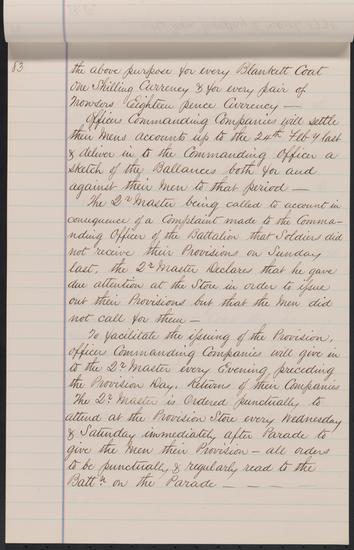 83
the above purpose for every Blankett Coat
One Shilling Currency & for every pair of
Trowsers Eighteen pence Currency —
Officers Commanding Companies will settle
their Mens accounts up to the 24th Feby last
& deliver in to the Commanding Officer a
Sketch of the Ballances both for and
against their Men to that period —
The Qr Master being called to account in
consequence of a Complaint made to the Comma-
nding Officer of the Battalion that Soldiers did
not receive their Provisions on Sunday
last, the Qr Master Declares that he gave
due attention at the Store in order to issue
out their Provisions but that the Men did
not call for them —
To facilitate the issuing of the Provision,
Officers Commanding Companies will give in
to the Qr Master every Evening preceding
the Provision Day, Returns of their Companies
The Qr Master is Ordered punctually to
attend at the Provision Store every Wednesday
& Saturday immediately after Parade to
give the Men their Provision — all orders
to be punctually & regularly read to the
Battn on the Parade — — — —